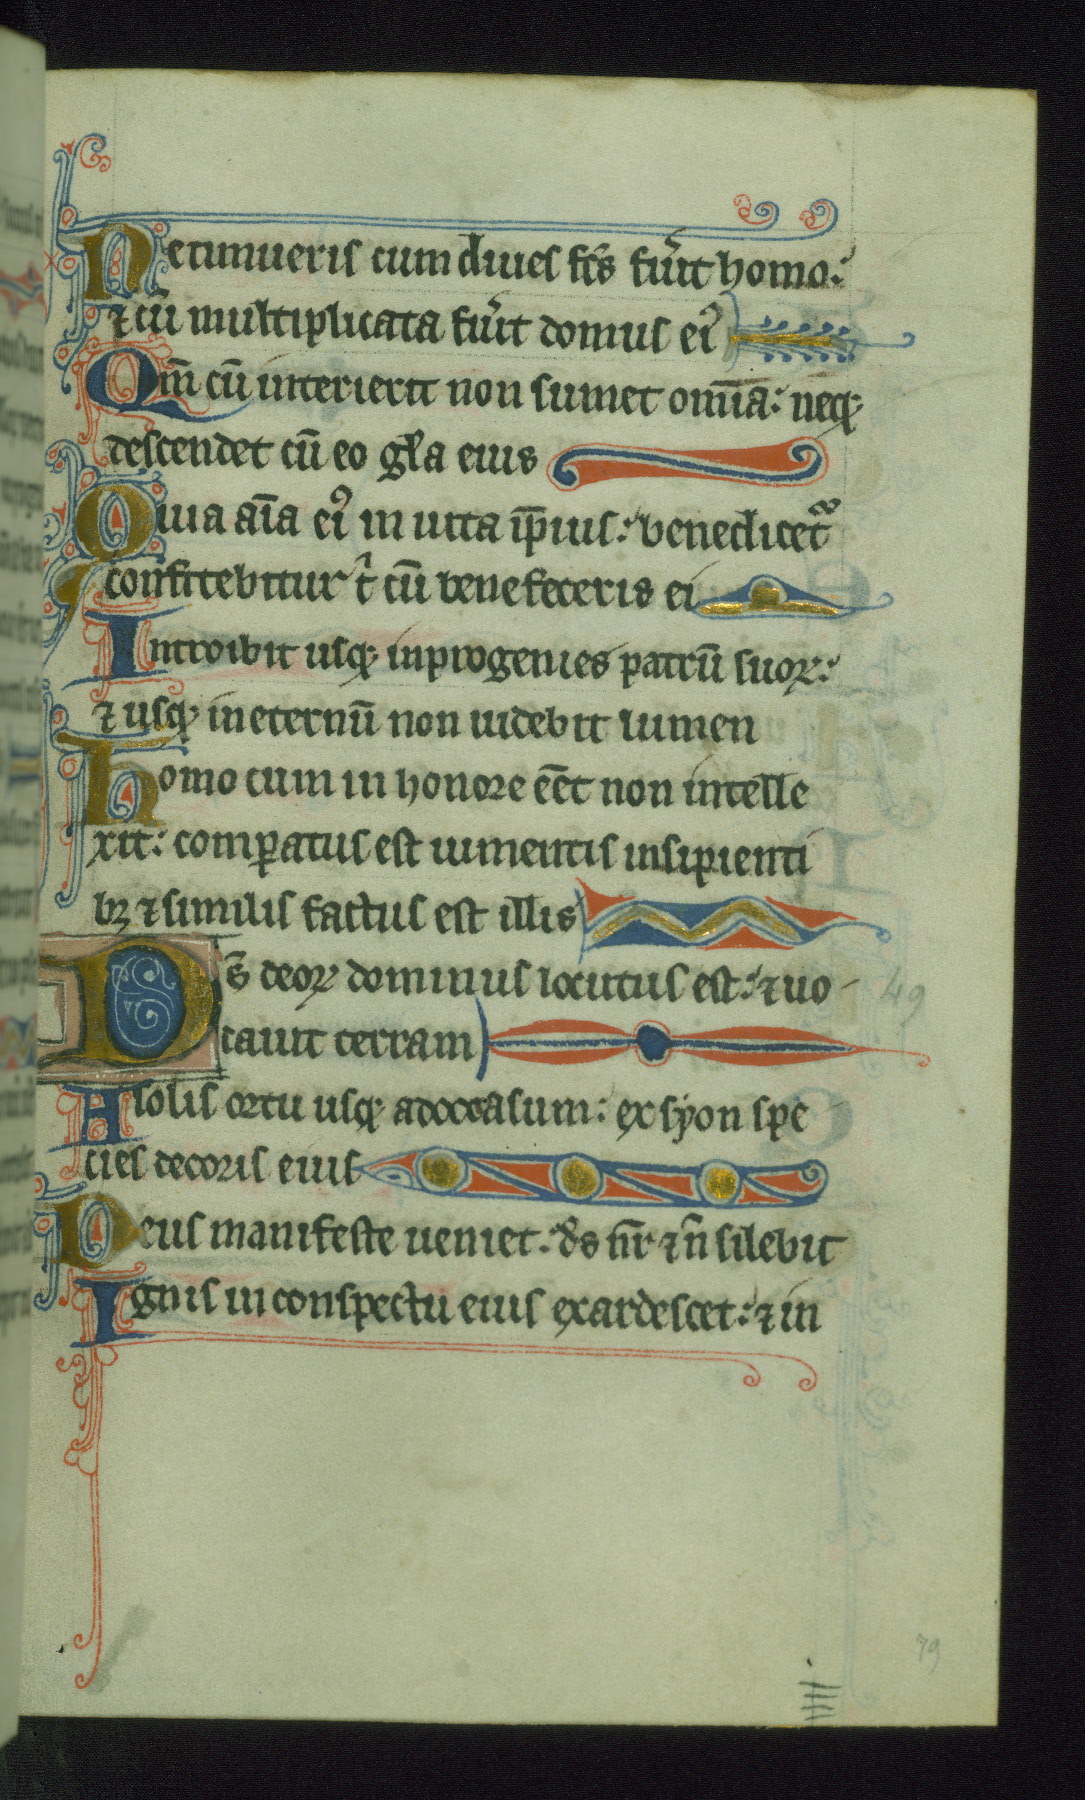 Ne timueris cum diues fcs fu᷑it homo:
⁊ cū multiplicata fu᷑it domus eiꝰ
Qm̄ cū interierit non sumet om̄ia: neqꝫ
descendet cū eo gl̄a eius
Quia aīa eiꝰ in uita ip̄ius: benedicet᷑
confitebitur t̄ cū benefeceris ei
Introibit usqꝫ in progenies patrū suoꝝ:
⁊ usqꝫ in eternū non uidebit lumen
homo cum in honore eēt non intelle
xit: comꝑatus est iumentis insipienti
bꝫ ⁊ similis factus est illis
Ds̄ deoꝝ dominus locutus est: ⁊ uo
cauit terram
49
A solis ortu usqꝫ ad occasum: ex syon spe
cies decoris eius
Deus manifeste ueniet: ds̄ nr̄ ⁊ n̄ silebit
Ignis in conspectu eius exardescet: ⁊ in
79